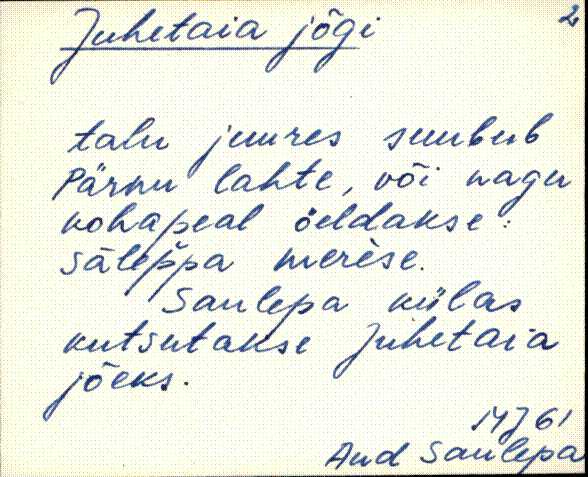 Juhetaia jõgi
2
talu juures suubub
Pärnu lahte, või nagu
kohapeal öeldakse:
säleppa merèse.
Saulepa külas
kutsutakse Juhetaia
jõeks.
MJ 61
Aud Saulepa